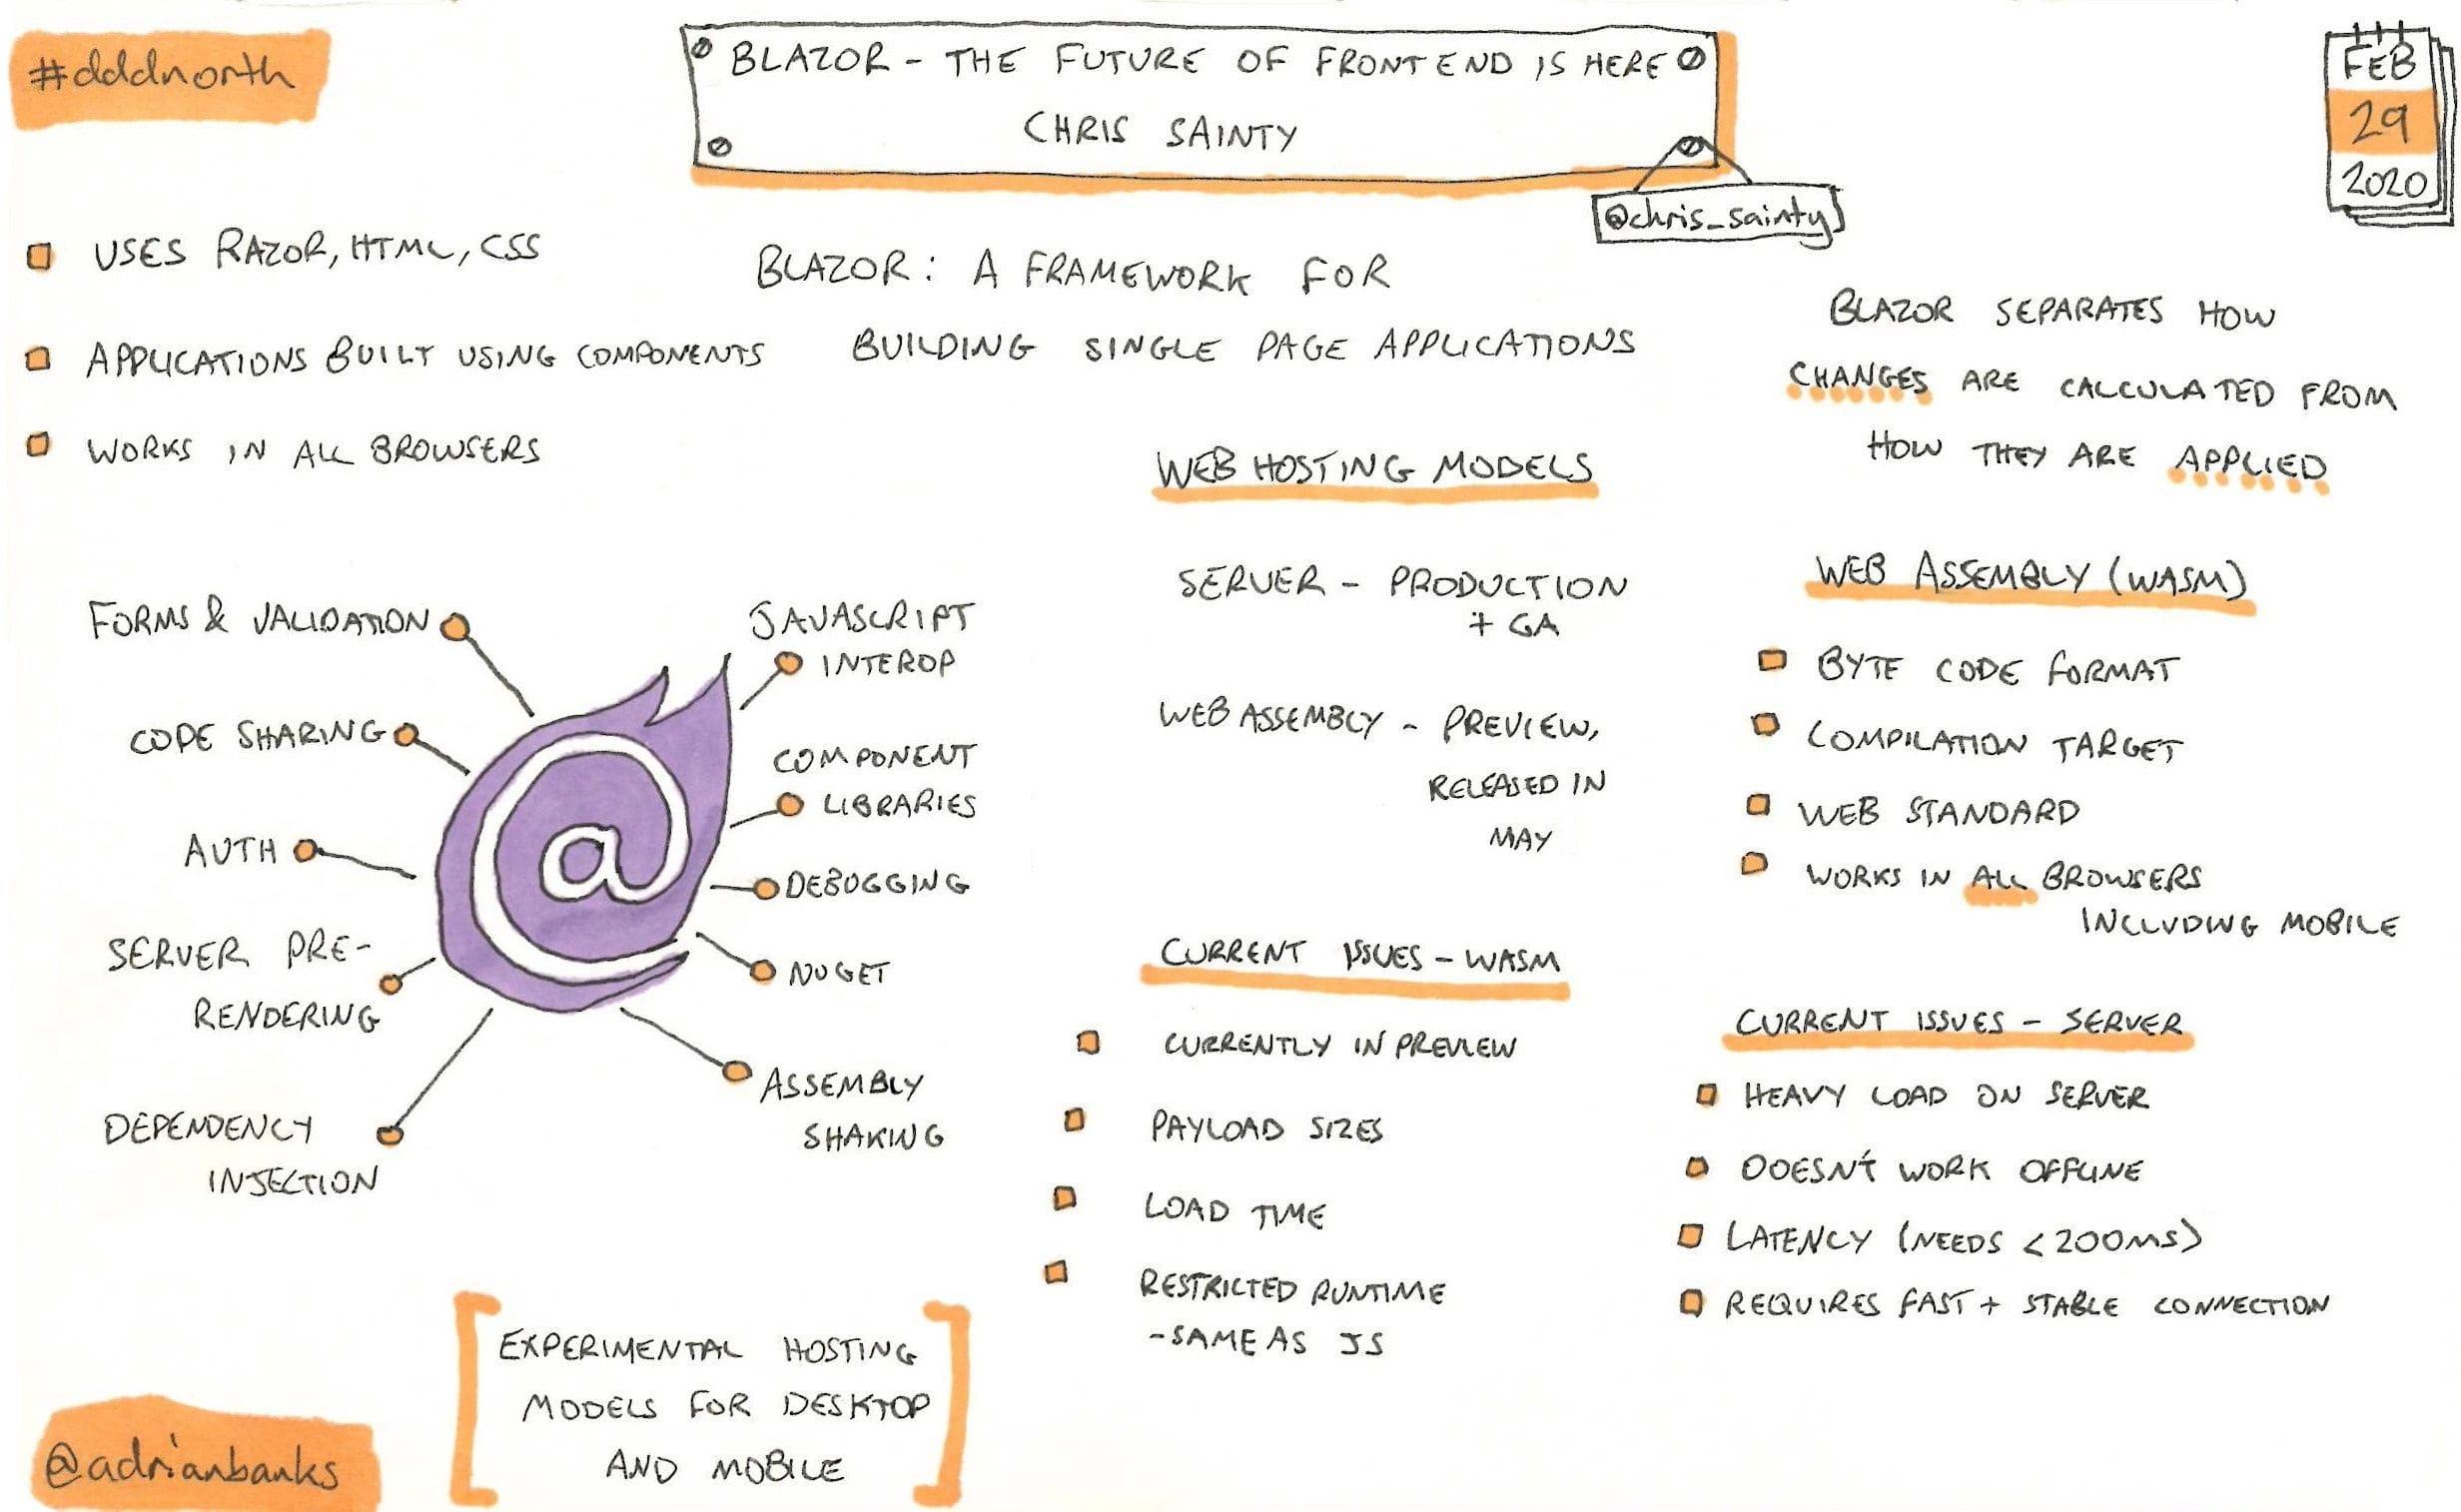 #dddnorth
BLAZOR - THE FUTURE OF FRONTEND IS HERE
CHRIS SAINTY
@chris_sainty
FEB
29
2020
USES RAZOR, HTML, CSS
APPLICATIONS BUILT USING COMPONENTS
WORKS IN ALL BROWSERS
BLAZOR: A FRAMEWORK FOR
BUILDING SINGLE PAGE APPLICATIONS
BLAZOR SEPARATES HOW
CHANGES ARE CALCULATED FROM
HOW THEY ARE APPLIED
FORMS & VALIDATION
CODE SHARING
AUTH
SERVER PRE-
RENDERING
DEPENDENCY
INJECTION
@
JAVASCRIPT
INTEROP
COMPONENT
LIBRARIES
DEBUGGING
NUGET
ASSEMBLY
SHAKING
WEB HOSTING MODELS
SERVER - PRODUCTION
+ GA
WEB ASSEMBLY - PREVIEW,
RELEASED IN
MAY
WEB ASSEMBLY (WASM)
BYTE CODE FORMAT
COMPILATION TARGET
WEB STANDARD
WORKS IN ALL BROWSERS
INCLUDING MOBILE
CURRENT ISSUES - WASM
CURRENTLY IN PREVIEW
PAYLOAD SIZES
LOAD TIME
RESTRICTED RUNTIME
- SAME AS JS
CURRENT ISSUES - SERVER
HEAVY LOAD ON SERVER
DOESN'T WORK OFFLINE
LATENCY (NEEDS < 200MS)
REQUIRES FAST + STABLE CONNECTION
EXPERIMENTAL HOSTING
MODELS FOR DESKTOP
AND MOBILE
@adrianbanks